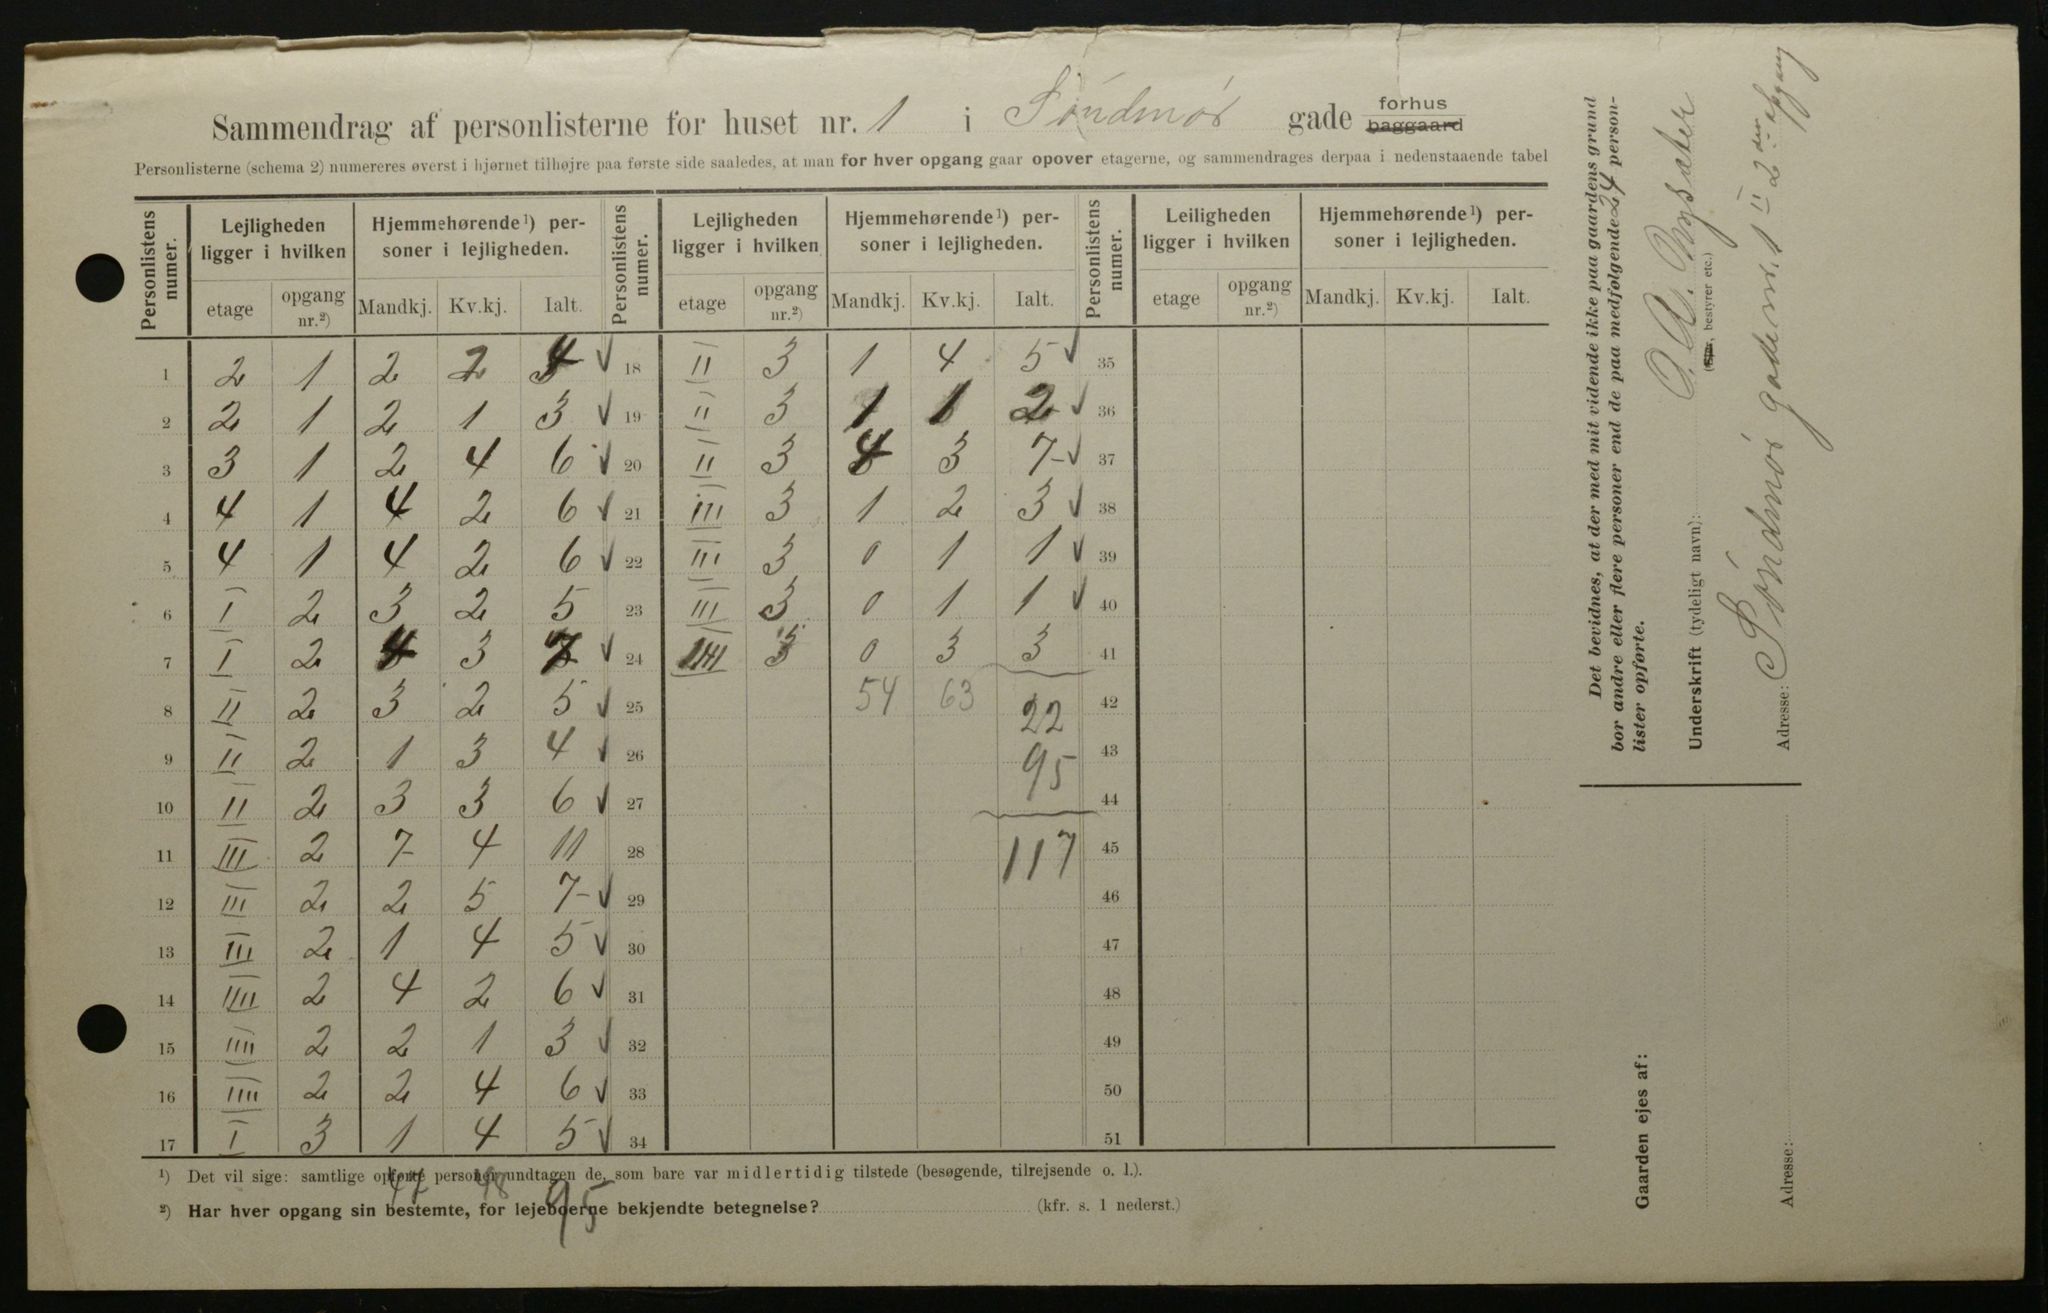 Sammendrag af personlisterne for huset nr. 1 i Söndmör gade forhus baggaard
Personlisterne (schema 2) numereres øverst i hjørnet tilhøjre paa første side saaledes, at man for hver opgang gaar opover etagerne, og sammendrages derpaa i nedenstaaende tabel
Personlistens numer. Lejligheden ligger i hvilken Hjemmehørende¹) personer i lejligheden. Personlistens numer. Lejligheden ligger i hvilken Hjemmehørende¹) personer i lejligheden. Personlistens numer. Leiligheden ligger i hvilken Hjemmehørende¹) personer i lejligheden.
etage opgang nr.²) Mandkj. Kv.kj. Ialt. etage opgang nr.²) Mandkj. Kv.kj. Ialt. etage opgang nr.²) Mandkj. Kv.kj. Ialt.
1 2 1 2 2 4 ✓ 18 II 3 1 4 5 ✓ 35
2 2 1 2 1 3 ✓ 19 II 3 1 1 2 ✓ 36
3 3 1 2 4 6 ✓ 20 II 3 4 3 7 ✓ 37
4 4 1 4 2 6 ✓ 21 III 3 1 2 3 ✓ 38
5 4 1 4 2 6 ✓ 22 III 3 0 1 1 ✓ 39
6 I 2 3 2 5 23 III 3 0 1 1 ✓ 40
7 I 2 4 3 7 ✓ 24 IIII 3 0 3 3 41
8 II 2 3 2 5 ✓ 25 54 63 22 42
9 II 2 1 3 4 ✓ 26 95 43
10 II 2 3 3 6 ✓ 27 44
11 III 2 7 4 11 28 117 45
12 III 2 2 5 7 ✓ 29 46
13 III 2 1 4 5 ✓ 30 47
14 IIII 2 4 2 6 ✓ 31 48
15 IIII 2 2 1 3 ✓ 32 49
16 IIII 2 2 4 6 ✓ 33 50
17 I 3 1 4 5 ✓ 34 51
¹) Det vil sige: samtlige opførte personer undtagen de, som bare var midlertidig tilstede (besøgende, tilrejsende o. l.).
47 48 95
²) Har hver opgang sin bestemte, for lejeboerne bekjendte betegnelse? (kfr. s. 1 nederst.)
Det bevidnes, at der med mit vidende ikke paa gaardens grund
bor andre eller flere personer end de paa medfølgende 24 person-
lister opførte.
Underskrift (tydeligt navn):
bestyrer etc.)
Adresse: Söndmör gade nr. 1 II 2 den opgang
Gaarden ejes af:
Adresse: